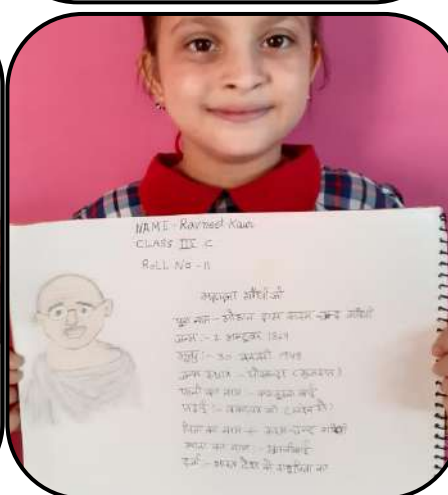 NAME - Ravneet Kaur
CLASS III C
ROLL NO - 11
महात्मा गाँधी जी
पूरा नाम - मोहन दास करम चन्द गाँधी
जन्म :- 2 अक्टूबर 1869
मृत्यु :- 30 जनवरी 1948
जन्म स्थान - पोरबन्दर (गुजरात)
पत्नी का नाम - कस्तूरबा बाई
पढ़ाई :- वकालत की
पिता का नाम - करम चन्द गाँधी
माता का नाम - पुतलीबाई
दर्जा - भारत देश के राष्ट्रपिता का